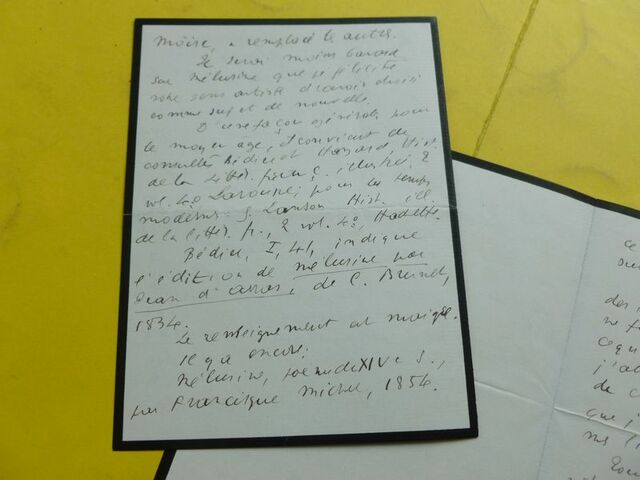 moire, a remplacé le autre.
Je serai moins bavard
sur Mélusine que je félicite
votre artiste d'avoir choisi
comme sujet de nouvelle.
D'une façon générale, pour
le moyen âge, il convient de
consulter Bédier et Hazard, Hist.
de la Litter. franç. illustrée, 2
vol. 4º Larousse; pour les temps
modernes: G. Lanson Hist. ill.
de la litter. fr., 2 vol. 4º, Hachette.
Bédier, I, 41, indique
l'édition de Mélusine par
Jean d'Arras, de C. Brunet,
1834.
Le renseignement est maigre.
Il y a encore:
Mélusine, poème du XIVe s.,
par Francisque Michel, 1854.
ce
des
ne f
ce qu
j'a
de c
que j